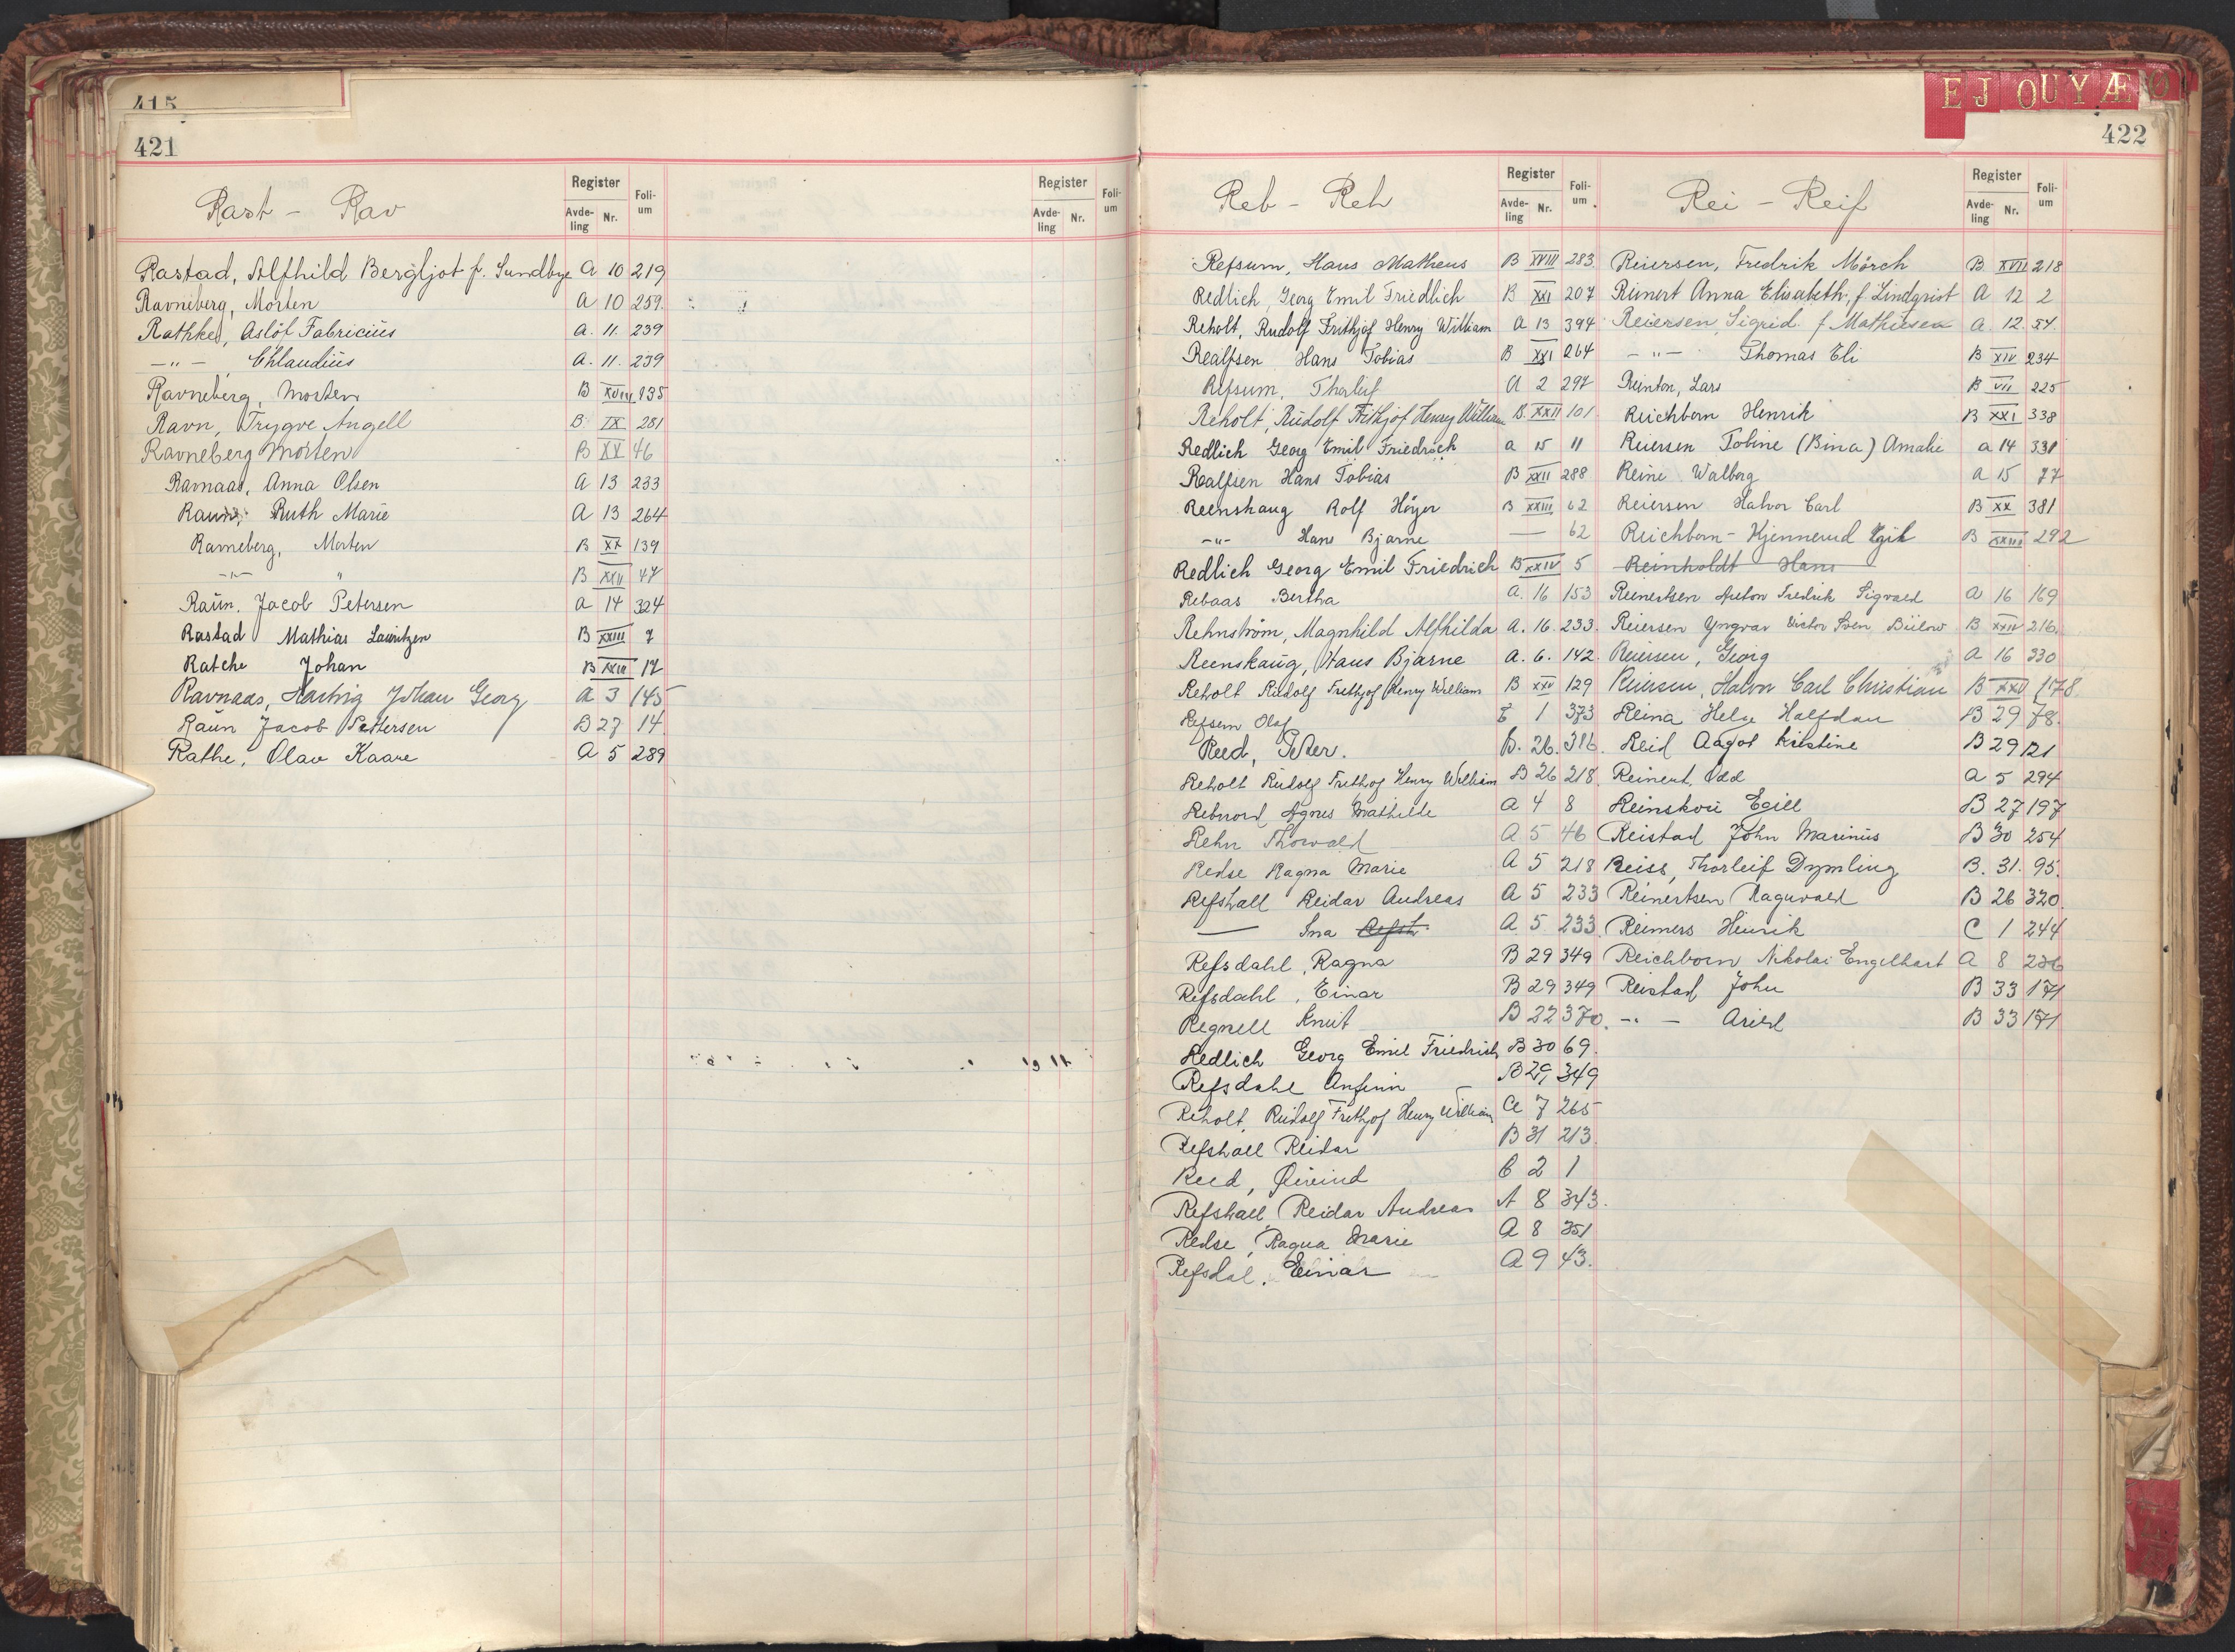 415
421
Rast - Rav
Register
Avde-
ling
Nr.
Foli-
um
Rastad, Alfhild Bergljot f. Sundbye A 10 219
Ravneberg, Morten A 10 259.
Rathke, Aslöf Fabricius A. 11. 239
—"— , Chlaudius A. 11. 239
Ravneberg, Morten B XVIII 135
Ravn, Trygve Angell B IX 281
Ravneberg Morten B XV 46
Ravnaas, Anna Olsen A 13 233
Ruth Marie A 13 264
Ravneberg, Morten B XX 139
—"— " B XXII 47
Raun, Jacob Petersen A 14 324
Rastad Mathias Lauritzen B XXIII 7
Ratche Johan B XXIII 17
Ravnaas, Hartvig Johan Georg A 3 145
Raun Jacob Pettersen B 27 14.
Rathe, Olav Kaare A 5 289
Register
Avde-
ling
Nr.
Foli-
um
E J O U Y Æ Ø
422
Reb - Reh
Register
Avde-
ling
Nr.
Foli-
um
Refsum, Hans Matheus B XVIII 283
Redlich, Georg Emil Friedlich B XXI 207
Reholt, Rudolf Frithjof Henry William A 13 394
Realfsen Hans Tobias B XXI 264
Refsum, Thorleif A 2 297
Reholt, Rudolf Frithjof Henry William B XXII 101
Redlich Georg Emil Friedrich A 15 11
Realfsen Hans Tobias B XXII 288
Reenskaug Rolf Höyer B XXIII 62
—"— Hans Bjarne — 62
Redlich Georg Emil Friedrich B XXIV 5
Rebaas Bertha A. 16 153
Rehnström, Magnhild Alfhilda A. 16. 233.
Reenskaug, Hans Bjarne A. 6. 142.
Reholt Rudolf Frithjof Henry William B XXV 129
Refsem Olaf 1 373
Reed, Peter. B. 26. 386.
Reholt Rudolf Frithjof Henry William B 26 218.
Rebnord, Agnes Mathilde A 4 8
Rehn Thorvald A 5 46
Redse Ragna Marie A 5 218
Refshall Reidar Andreas A 5 233
— Ina Refsh A 5 233.
Refsdahl, Ragna B 29 349
Refsdahl, Einar B 29 349
Regnell Knut B 22 370.
Redlich Georg Emil Friedrich B 30 69.
Refsdahl Anfinn B 29, 349
Reholt, Rudolf Frithjof Henry William A 7 265
Refshall Reidar B 31 213.
Reed, Øivind C 2 1
Refshall, Reidar Andreas A 8 343.
Redse, Ragna Marie A 8 351
Refsdal, Einar A 9 43.
Rei - Reif
Register
Avde-
ling
Nr.
Foli-
um
Reiersen, Fredrik Mörch B XVII 218
Reinert Anna Elisabeth, f. Lindqvist A 12 2
Reiersen, Sigrid. f Mathiesen A. 12. 54.
—"— Thomas Eli B XIV 234
Reinton, Lars B VII 225
Reichborn Henrik B XXI 338
Reiersen Tobine (Bina) Amalie A 14 331
Reine Walborg A 15 77
Reiersen Halvor Carl B XX 381
Reichborn-Kjennerud Egil B XXIII 292
Reinholdt Hans
Reinertsen Anton Fredrik Sigvald A 16 169
Reiersen Yngvar Victor Sven Bülow B XXIV 216.
Reiersen, Georg A 16 330
Reiersen, Halvor Carl Christian B XXV 178.
Reina Helge Halfdan B 29 78.
Reid Aagot Kristine B 29 121
Reinert, Odd A 5 294
Reinskou Egill B 27 197
Reistad John Marinus B 30 254
Reiss, Thorleif Dymling B. 31. 95.
Reinertsen Ragnvald B 26 320.
Reimers Henrik C 1 244
Reichborn Nikolai Engelhart A 8 236
Reistad John B 33 171
—"— Arild B 33 171